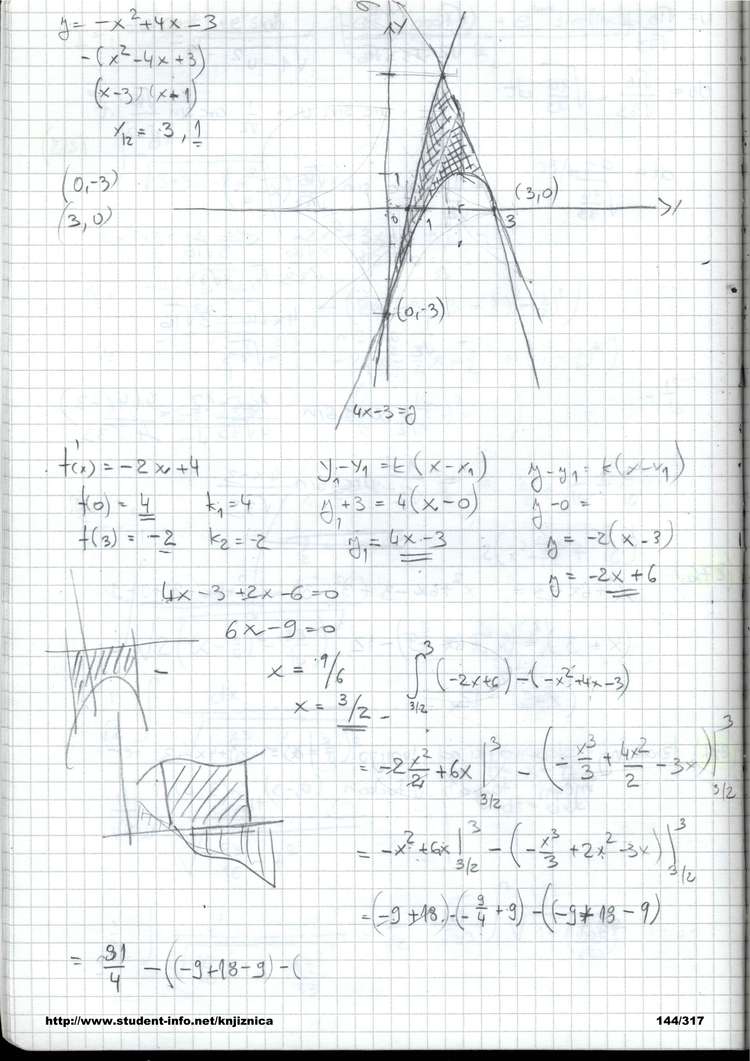 y = -x² + 4x - 3
-(x² - 4x + 3)
(x-3)(x-1)
x/12 = 3, 1
(0,-3)
(3,0)
y
1
0
1
3
(3,0)
(0,-3)
4x-3=y
f'(x) = -2x + 4
f(0) = 4 k₁ = 4
f(3) = -2 k₂ = -2
y₁ - y₁ = k(x - x₁)
y₁ + 3 = 4(x - 0)
y₁ = 4x - 3
y - y₁ = k(x - x₁)
y - 0 =
y = -2(x - 3)
y = -2x + 6
4x - 3 + 2x - 6 = 0
6x - 9 = 0
x = 9/6
x = 3/2
∫3/2 3 (-2x+6) - (-x² + 4x - 3)
= -2 x²/2 + 6x |3/2 3 - (-x³/3 + 4x²/2 - 3x)|3/2 3
= -x² + 6x |3/2 3 - (-x³/3 + 2x² - 3x)|3/2 3
= (-9 + 18) - (-9/4 + 9) - ((-9 + 18 - 9)
= 81/4 - ((-9 + 18 - 9) - (
http://www.student-info.net/knjiznica 144/317